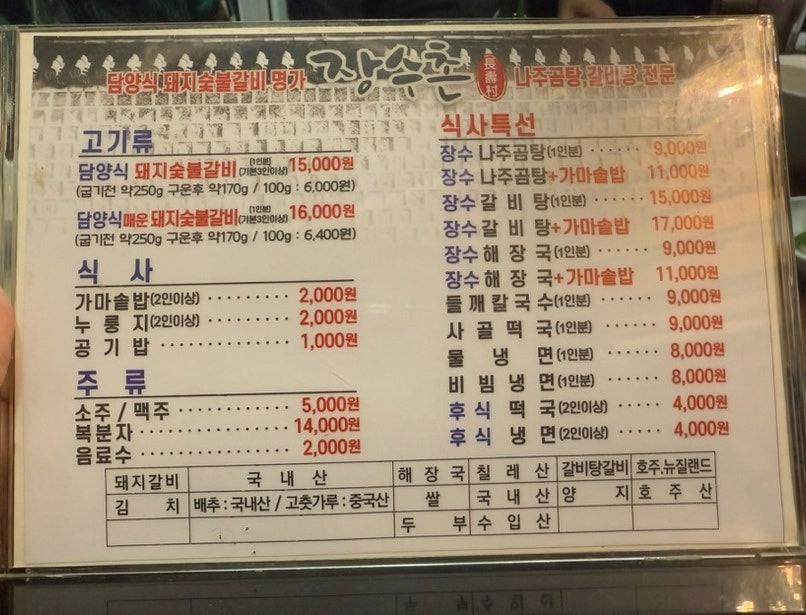 담양식 돼지숯불갈비 명가 장수촌 長壽村 나주곰탕, 갈비탕 전문
고기류
담양식 돼지숯불갈비 (1인분) (기본3인이상) 15,000원
(굽기전 약250g 구운후 약170g / 100g : 6,000원)
담양식 매운 돼지숯불갈비 (1인분) (기본3인이상) 16,000원
(굽기전 약250g 구운후 약170g / 100g : 6,400원)
식 사
가마솥밥(2인이상) ········· 2,000원
누 룽 지(2인이상) ········· 2,000원
공 기 밥 ············· 1,000원
주 류
소주 / 맥주 ············ 5,000원
복분자 ··············· 14,000원
음료수 ··············· 2,000원
식사특선
장수 나주곰탕(1인분) ······ 9,000원
장수 나주곰탕+가마솥밥 11,000원
장수 갈 비 탕(1인분) ······ 15,000원
장수 갈 비 탕+가마솥밥 17,000원
장수 해 장 국(1인분) ······ 9,000원
장수 해 장 국+가마솥밥 11,000원
들깨칼국수(1인분) ······ 9,000원
사 골 떡 국(1인분) ······ 9,000원
물 냉 면(1인분) ······ 8,000원
비 빔 냉 면(1인분) ······ 8,000원
후 식 떡 국(2인이상) ····· 4,000원
후 식 냉 면(2인이상) ····· 4,000원
돼지갈비 국 내 산 해 장 국 칠 레 산 갈비탕갈비 호주,뉴질랜드
김 치 배추 : 국내산 / 고춧가루 : 중국산 쌀 국 내 산 양 지 호 주 산
두 부 수 입 산